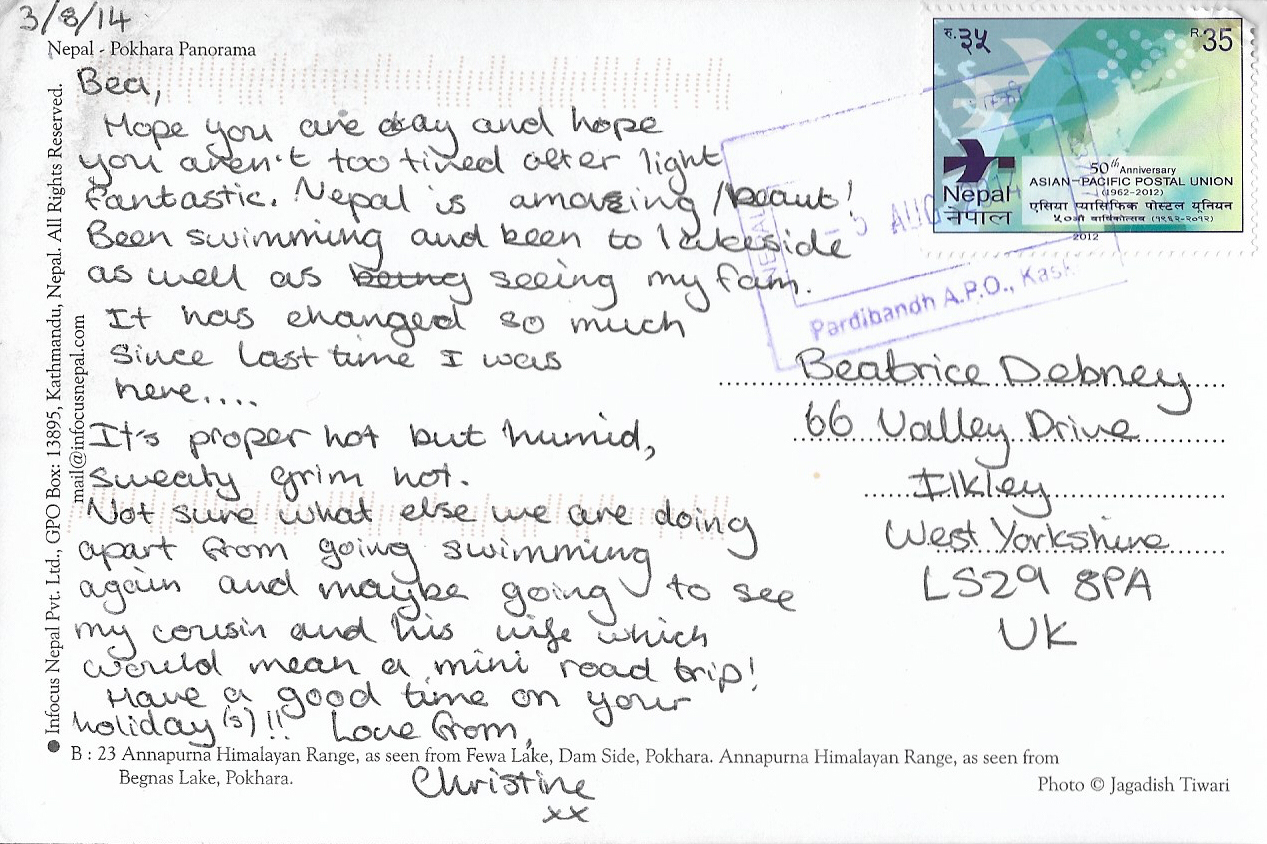 3/8/14
Nepal - Pokhara Panorama
Bea,
Hope you are okay and hope
you aren't too tired after light
fantastic. Nepal is amazing / beaut!
Been swimming and been to lakeside
as well as being seeing my fam.
It has changed so much
since last time I was
here....
It's proper hot but humid,
sweaty grim hot.
Not sure what else we are doing
apart from going swimming
again and maybe going to see
my cousin and his wife which
would mean a mini road trip!
Have a good time on your
holiday(s)!! Love from,
Christine
xx
B : 23 Annapurna Himalayan Range, as seen from Fewa Lake, Dam Side, Pokhara. Annapurna Himalayan Range, as seen from
Begnas Lake, Pokhara.
Photo © Jagadish Tiwari
Infocus Nepal Pvt. Ltd., GPO Box: 13895, Kathmandu, Nepal. All Rights Reserved.
mail@infocusnepal.com
रु.३५
R.35
50th Anniversary
ASIAN-PACIFIC POSTAL UNION
(1962-2012)
एसिया प्यासिफिक पोस्टल यूनियन
५०औं वार्षिकोत्सव (१९६२-२०१२)
Nepal
नेपाल
2012
NEPAL
5 AUG
Pardibandh A.P.O., Kaski
Beatrice Debney
66 Valley Drive
Ilkley
West Yorkshire
LS29 8PA
UK